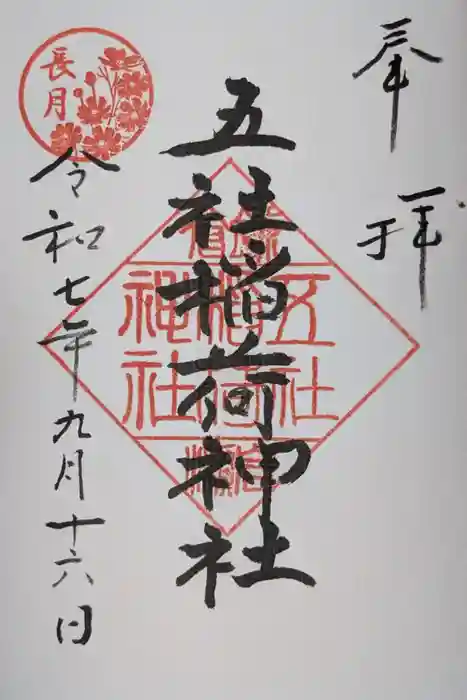 奉拝
五社稲荷神社
五社
稲荷
神社
長月
令和七年九月十六日